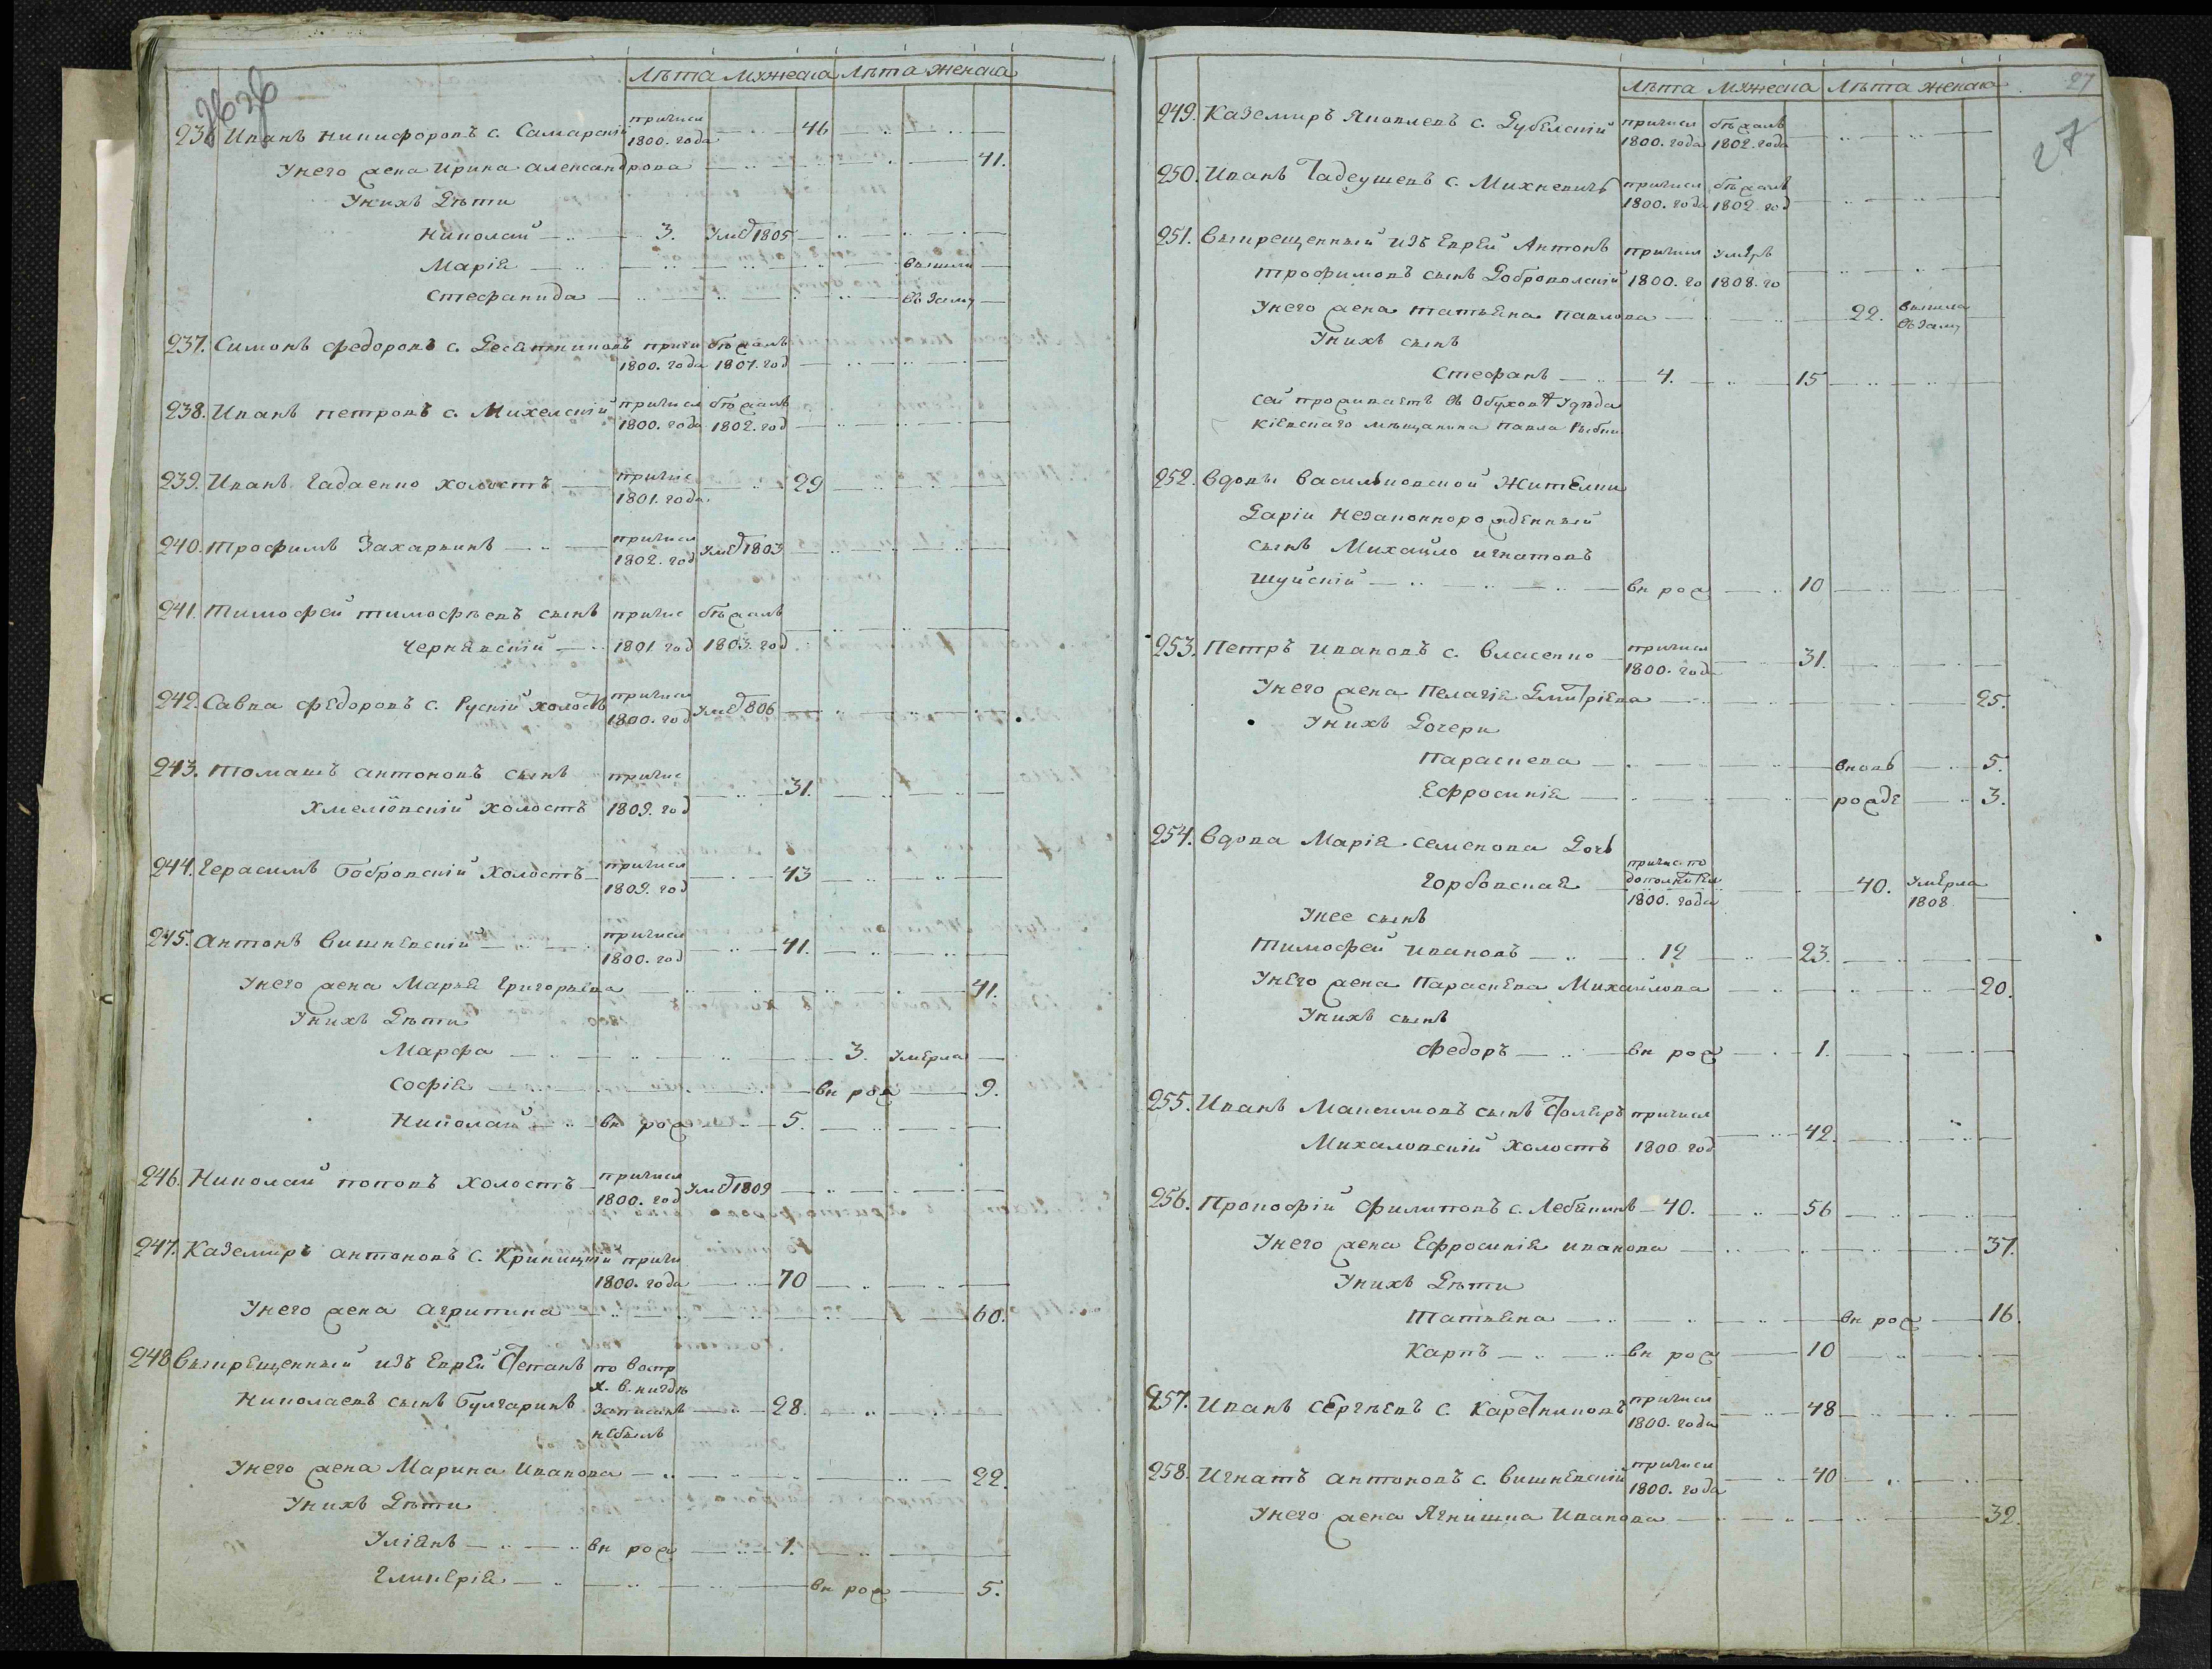 Лѣта мужеска Лѣта женска
26 26
236 Иванъ никифоровъ с. Самарскій причисл 1800. года 46
У него жена Ирина александрова 41.
У нихъ Дѣти
Николай 3. умеръ 1805
Марія вышли
Стефанида въ замуж
237. Симонъ федоровъ с. Десятниковъ причи 1800. года бѣжалъ 1807. год
238. Иванъ петровъ с. Михелскій причисл 1800. года бѣжалъ 1802. год
239. Иванъ Гадаенко холостъ причис 1801. года 29
240. трофимъ Захаркинъ причисл 1802. год умеръ 1803
241. Тимофей тимофѣевъ сынъ причис бѣжалъ
Чернявскій 1801 год 1803. год
242. Савка федоровъ с. Рускій холостъ причисл 1800. год умер 806
243. томашъ антоновъ сынъ причис 31.
Хмеліовскій холостъ 1809. год
244. Герасимъ бобровскій холостъ причисл 1809. год 43
245. антонъ вишневскій причисл 1800. год 41.
У него жена Марья григорьева 41.
У нихъ Дѣти
Марфа 3. умерла
Софія вн рож 9.
Николай вн рож 5.
246. Николай поповъ холостъ причисл 1800. год умер 1809
247. Каземиръ антоновъ с. Криницкій причи
1800. года 70
У него жена агрипина 60.
248 выкрещенный изъ еврей Степанъ по востр
Николаевъ сынъ булгаринъ х. в. нигдѣ записанъ небылъ 28.
У него жена Марина Иванова 22.
У нихъ Дѣти
Уліянъ вн рож 1.
Гликерія вн рож 5.
Лѣта мужеска Лѣта женска 27
27
249. Каземиръ Яковлевъ с. Дубелскій причисл 1800. года бѣжалъ 1802. года
250. Иванъ Тадеушевъ с. Михневичъ причисл 1800. года бѣжалъ 1802 год
251. выкрещенный изъ еврей Антонъ причисл умеръ
трофимовъ сынъ Доброволскій 1800. го 1808. го
У него жена татьяна павлова 22. вышла въ замуж
У нихъ сынъ
Стефанъ 4. 15
сей проживаетъ въ Обухов Уезда
кіевскаго мѣщанина павла
252. вдовы василковской жителки
Даріи незаконнорожденный
сынъ Михайло игнатовъ
шуйскій вн рож 10
253. Петръ ивановъ с. власенко причисл 1800. года 31.
У него жена пелагія Дмитріева 25.
У нихъ Дочери
параскева вновь 5.
ефросинія рожде 3.
254. вдова Марія семенова Дочь
горбовская причис по дополнител 1800. года 40. умерла 1808
У нее сынъ
тимофей ивановъ 12 23.
У него жена параскева Михайлова 20.
У нихъ сынъ
федоръ вн рож 1.
255. Иванъ Максимовъ сынъ Столяръ причисл 42.
Михаловскій холостъ 1800 год
256. прокофій филиповъ с. Лебѣкинъ 40. 56
У него жена ефросинія иванова 37.
У нихъ Дѣти
татьяна вн рож 16.
Карпъ вн рож 10
257. иванъ сергѣевъ с. Каретниковъ причисл 1800. года 48
258. игнатъ антоновъ с. вишневскій причисл 1800. года 40
У него жена Ягнишка Иванова 32.